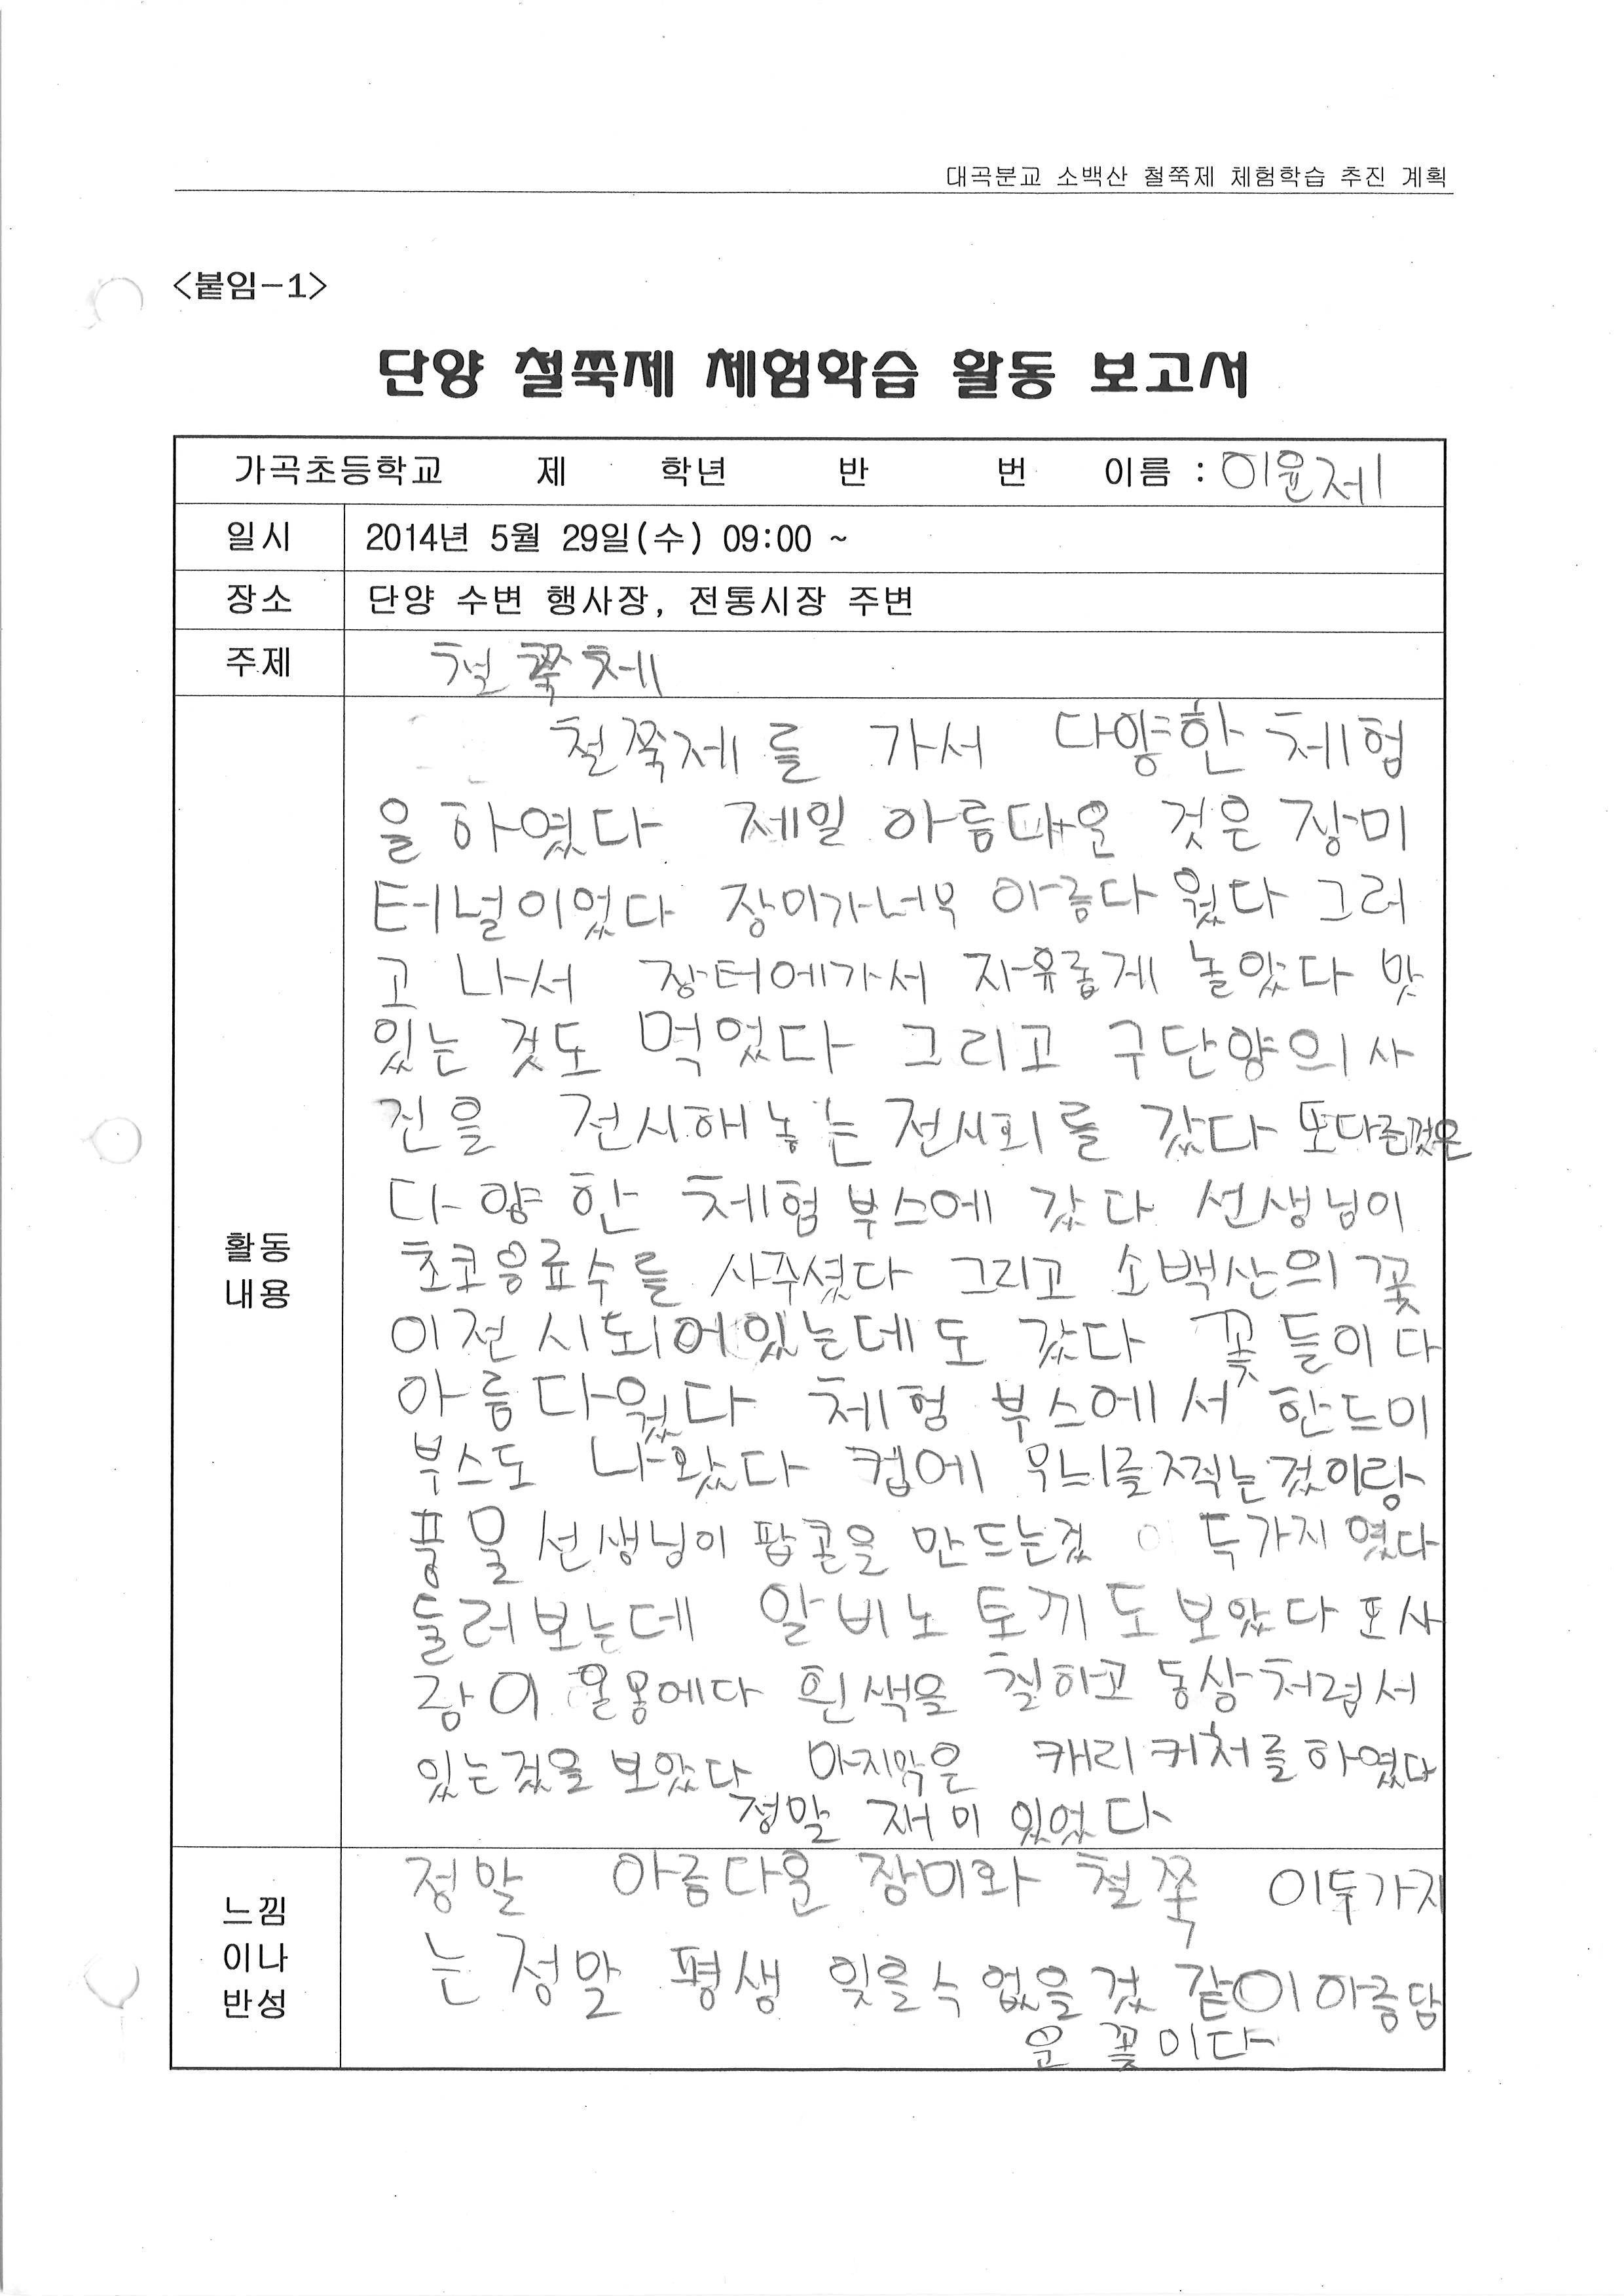 대곡분교 소백산 철쭉제 체험학습 추진 계획
<붙임-1>
단양 철쭉제 체험학습 활동 보고서
가곡초등학교 제 학년 반 번 이름 : 이윤제
일시 2014년 5월 29일(수) 09:00 ~
장소 단양 수변 행사장, 전통시장 주변
주제 철쭉체
철쭉제를 가서 다양한 체험
을 하였다 제일 아름다운 것은 장미
터널이었다 장미가너무 아름다웠다 그러
고 나서 장터에가서 자유롭게 놀았다 맛
있는 것도 먹었다 그리고 구단양의사
진을 전시해놓는 전시회를 갔다 또다른것은
다양한 체험부스에 갔다 선생님이
활동
내용
초코응료수를 사주셨다 그리고 소백산의 꽃
이전시되어있는데도 갔다 꽃들이다
아름다웠다 체험 부스에서 한드미
부스도 나왔다 컵에 무늬를찍는겄이랑
풍물선생님이 팝콘을 만드는겄 두가지였다
둘러보는데 알비노 토끼도보았다 또사
람이 온몸에다 흰색을 칠하고 동상처럼서
있는겄을 보았다 마지막은 캐리커처를하였다
정말 재미있었다
느낌
이나
반성
정말 아름다운 장미와 철쭉 이두가지
는정말 평생 잊을수없을겄 같이아름답
운 꽃이다